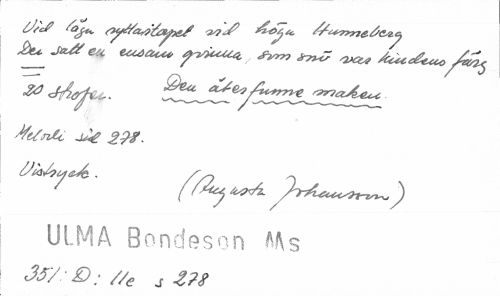 Vid låga ryttartorpet vid höga Hunneberg
Der satt en ensam qvinna, som snö var kindens färg
20 strofer. Den återfunne maken.
Melodi sid 278.
Vistryck.
(Augusta Johansson)
ULMA Bondeson Ms
351: D: 11e s 278